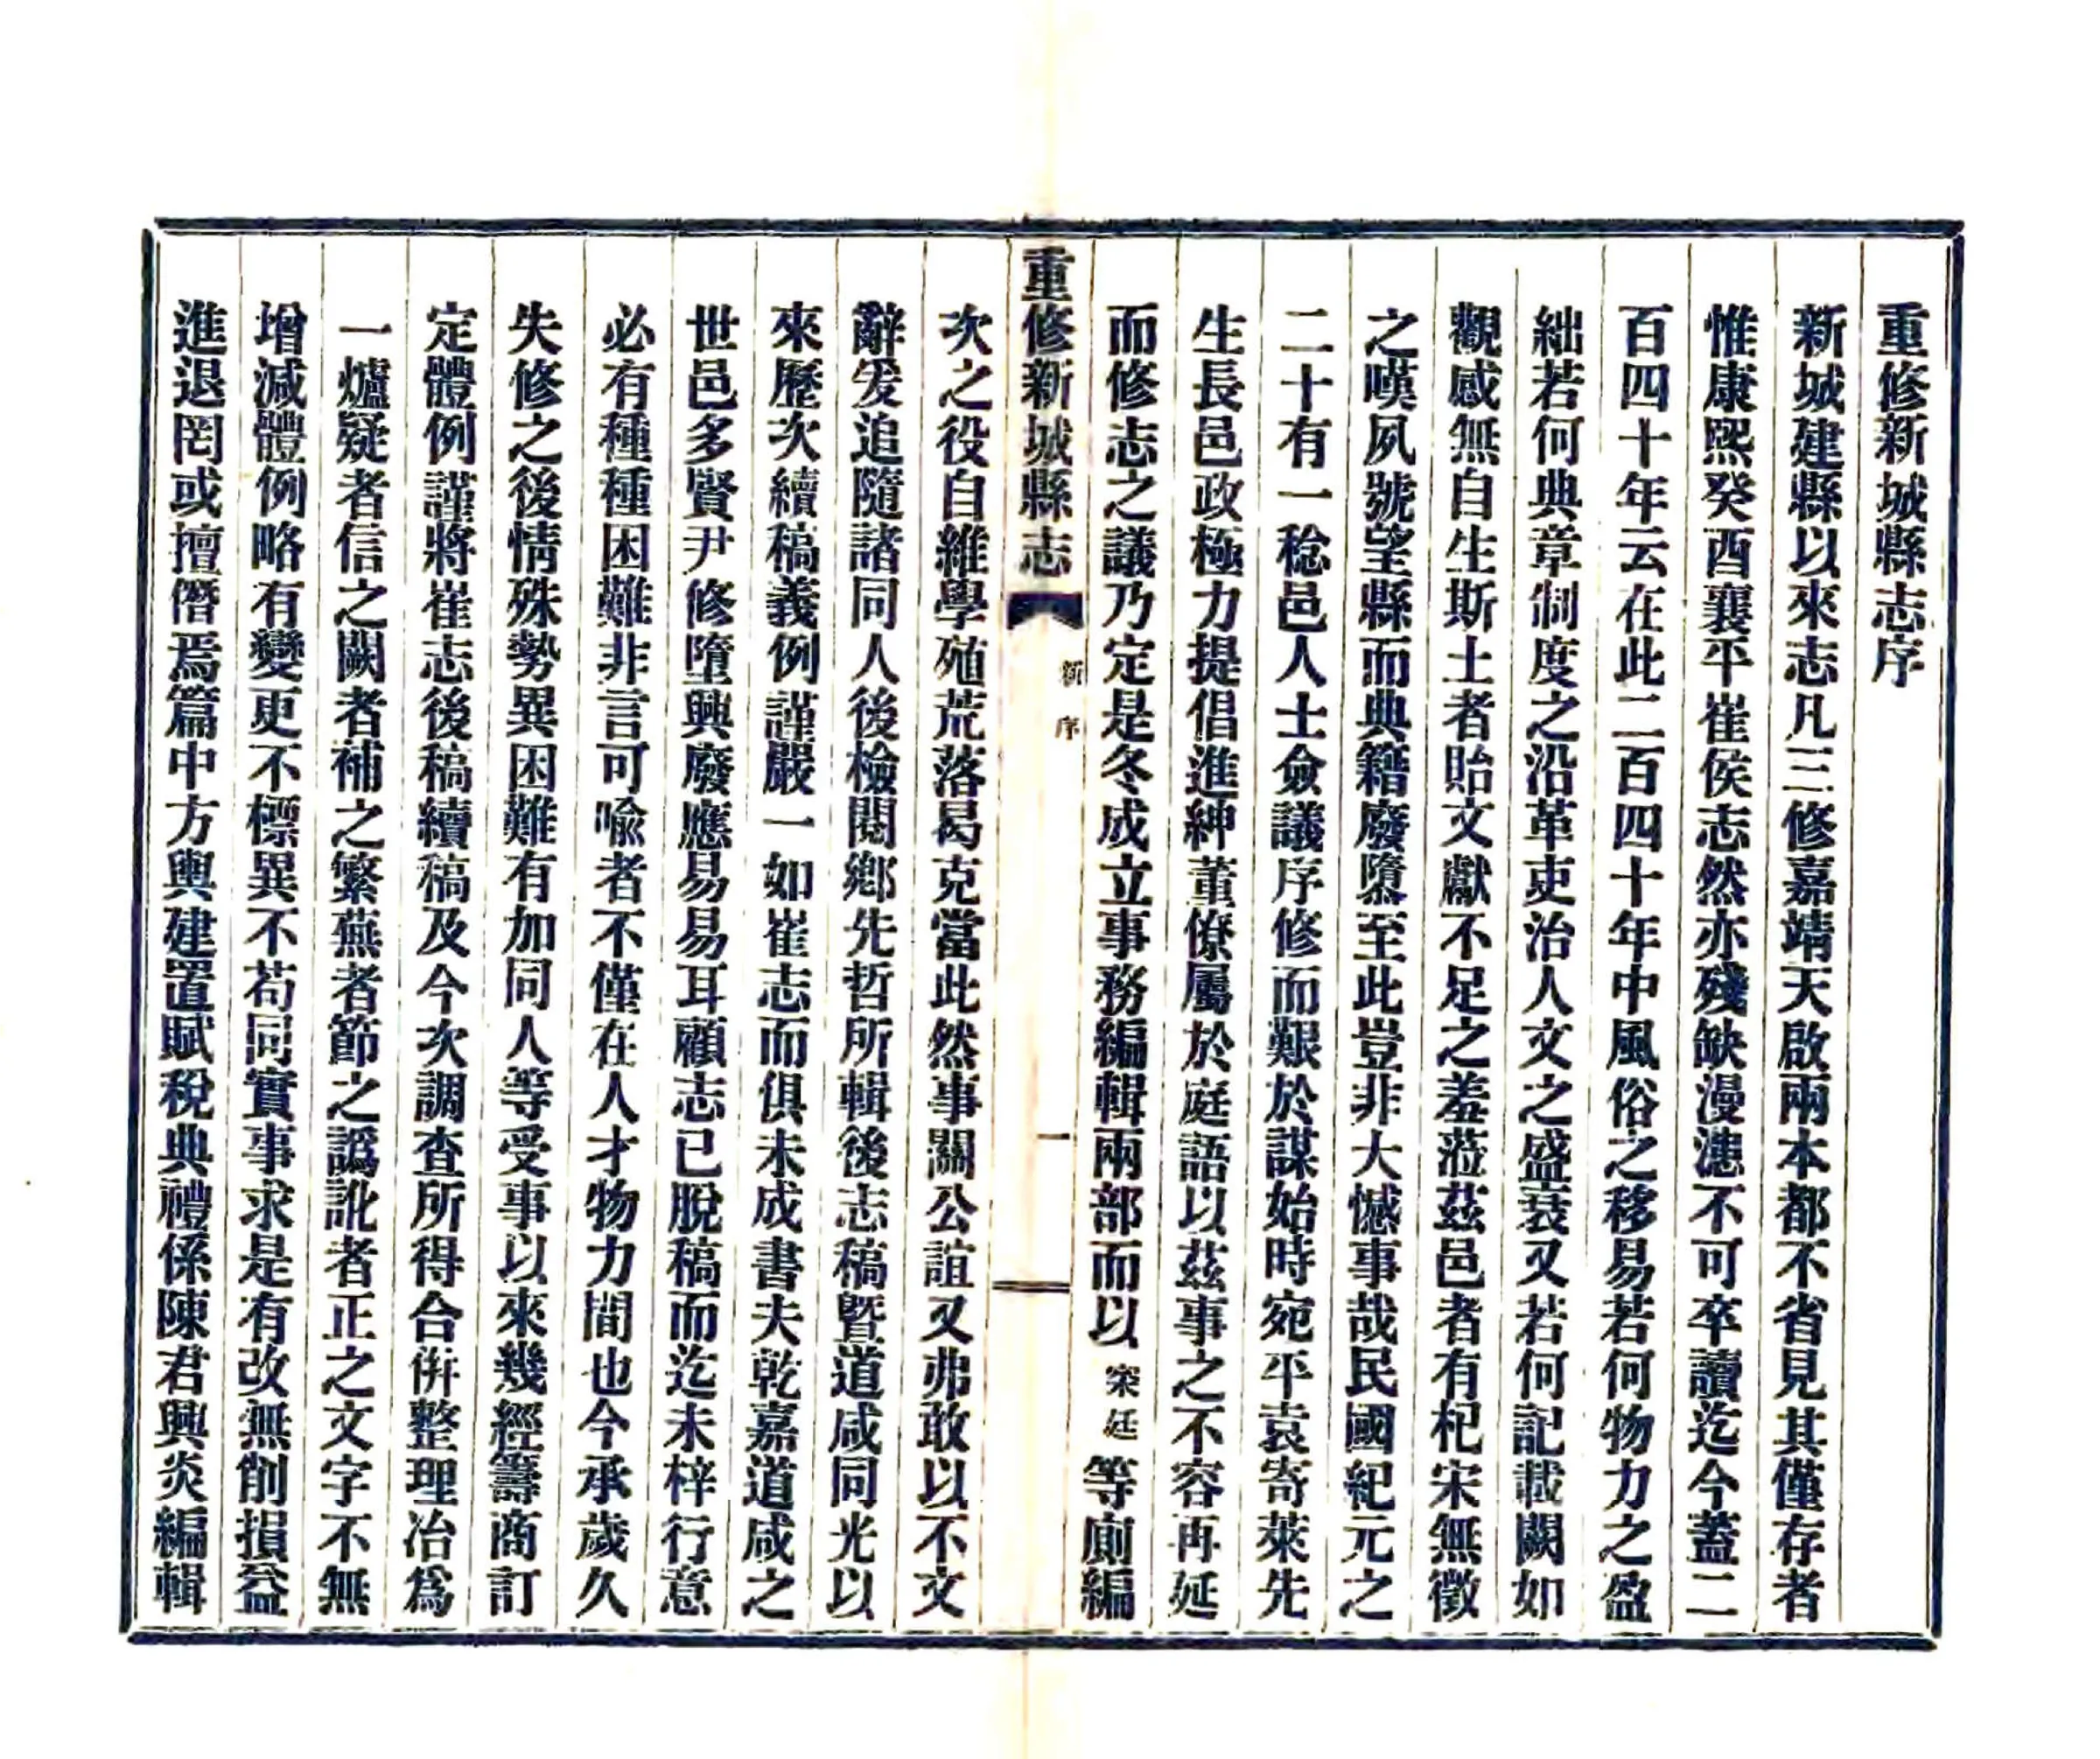 重修新城縣志序
新城建縣以來志凡三修嘉靖天啟兩本都不省見其僅存者
惟康熙癸酉襄平崔侯志然亦殘缺漫漶不可卒讀迄今蓋二
百四十年云在此二百四十年中風俗之移易若何物力之盈
絀若何典章制度之沿革吏治人文之盛衰又若何記載闕如
觀感無自生斯土者貽文獻不足之羞蒞茲邑者有杞宋無徵
之嘆夙號望縣而典籍廢隳至此豈非大憾事哉民國紀元之
二十有一稔邑人士僉議序修而艱於謀始時宛平袁寄萊先
生長邑政極力提倡進紳董僚屬於庭語以茲事之不容再延
而修志之議乃定是冬成立事務編輯兩部而以寀廷等廁編
重修新城縣志
新序
一
次之役自維學殖荒落曷克當此然事關公誼又弗敢以不文
辭爰追隨諸同人後檢閱鄉先哲所輯後志稿暨道咸同光以
來歷次續稿義例謹嚴一如崔志而俱未成書夫乾嘉道咸之
世邑多賢尹修墮興廢應易易耳顧志已脫稿而迄未梓行意
必有種種困難非言可喩者不僅在人才物力間也今承歲久
失修之後情殊勢異困難有加同人等受事以來幾經籌商訂
定體例謹將崔志後稿續稿及今次調查所得合併整理冶爲
一爐疑者信之闕者補之繁蕪者節之譌訛者正之文字不無
增減體例略有變更不標異不苟同實事求是有改無削損益
進退罔或擅僭焉篇中方輿建置賦稅典禮係陳君興炎編輯